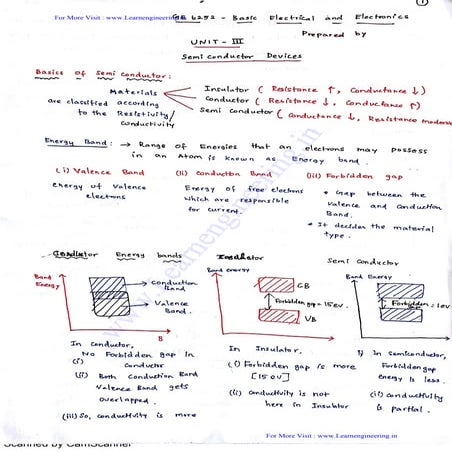 For More Visit : www.Learnengineering.in
GE 6252 - Basic Electrical and Electronics
Prepared by
UNIT - III
Semi conductor Devices
Basics of Semi conductor:
Materials are classified according to the Resistivity/ conductivity
Insulator ( Resistance ↑, Conductance ↓)
Conductor ( Resistance ↓, Conductance ↑)
Semi conductor ( Conductance ↓, Resistance
Energy Band: → Range of Energies that an electrons may possess
in an Atom is known as Energy band.
(i) Valence Band
energy of valence
electrons
(ii) Conduction Band
Energy of free electrons
which are responsible
for current.
(iii) Forbidden gap
* Gap between the
valence and conduction
Band.
* It decides the material
type.
Energy bands
Semi conductor
Band Energy
Conduction Band
Valence Band.
B
Band energy
CB
Forbidden gap = 15 ev
VB
Band Energy
Forbidden = 1ev
In conductor,
(i) No Forbidden gap in
conductor
(ii) Both Conduction Band
Valence Band gets
overlapped.
(iii) So, conductivity is more
In Insulator.
(i) Forbidden gap is more
[15 ev]
(ii) conductivity is not
here in Insulator
i) In Semiconductor,
Forbidden gap
energy is less.
(ii) conductivity
is partial.
www.Learnengineering.in
For More Visit : www.Learnengineering.in
Scanned by CamScanner